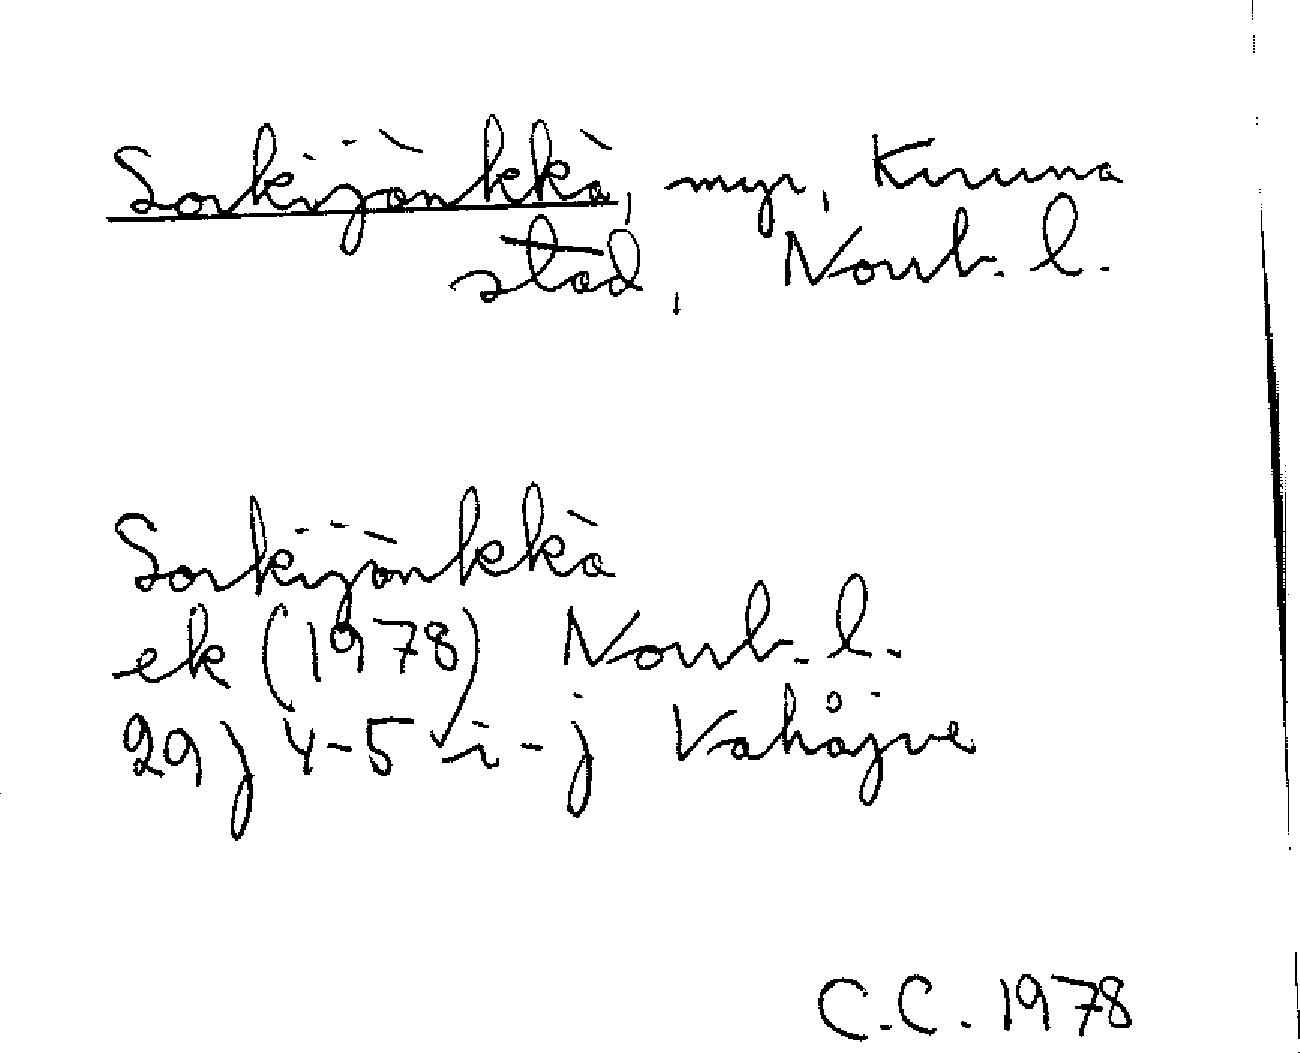 Sorkijänkkä, myr, Kiruna
stad, Norrb. l.
Sorkijänkkä
ek (1978) Norrb. l.
29 J 4-5 i-j Vahåjve
C.C. 1978